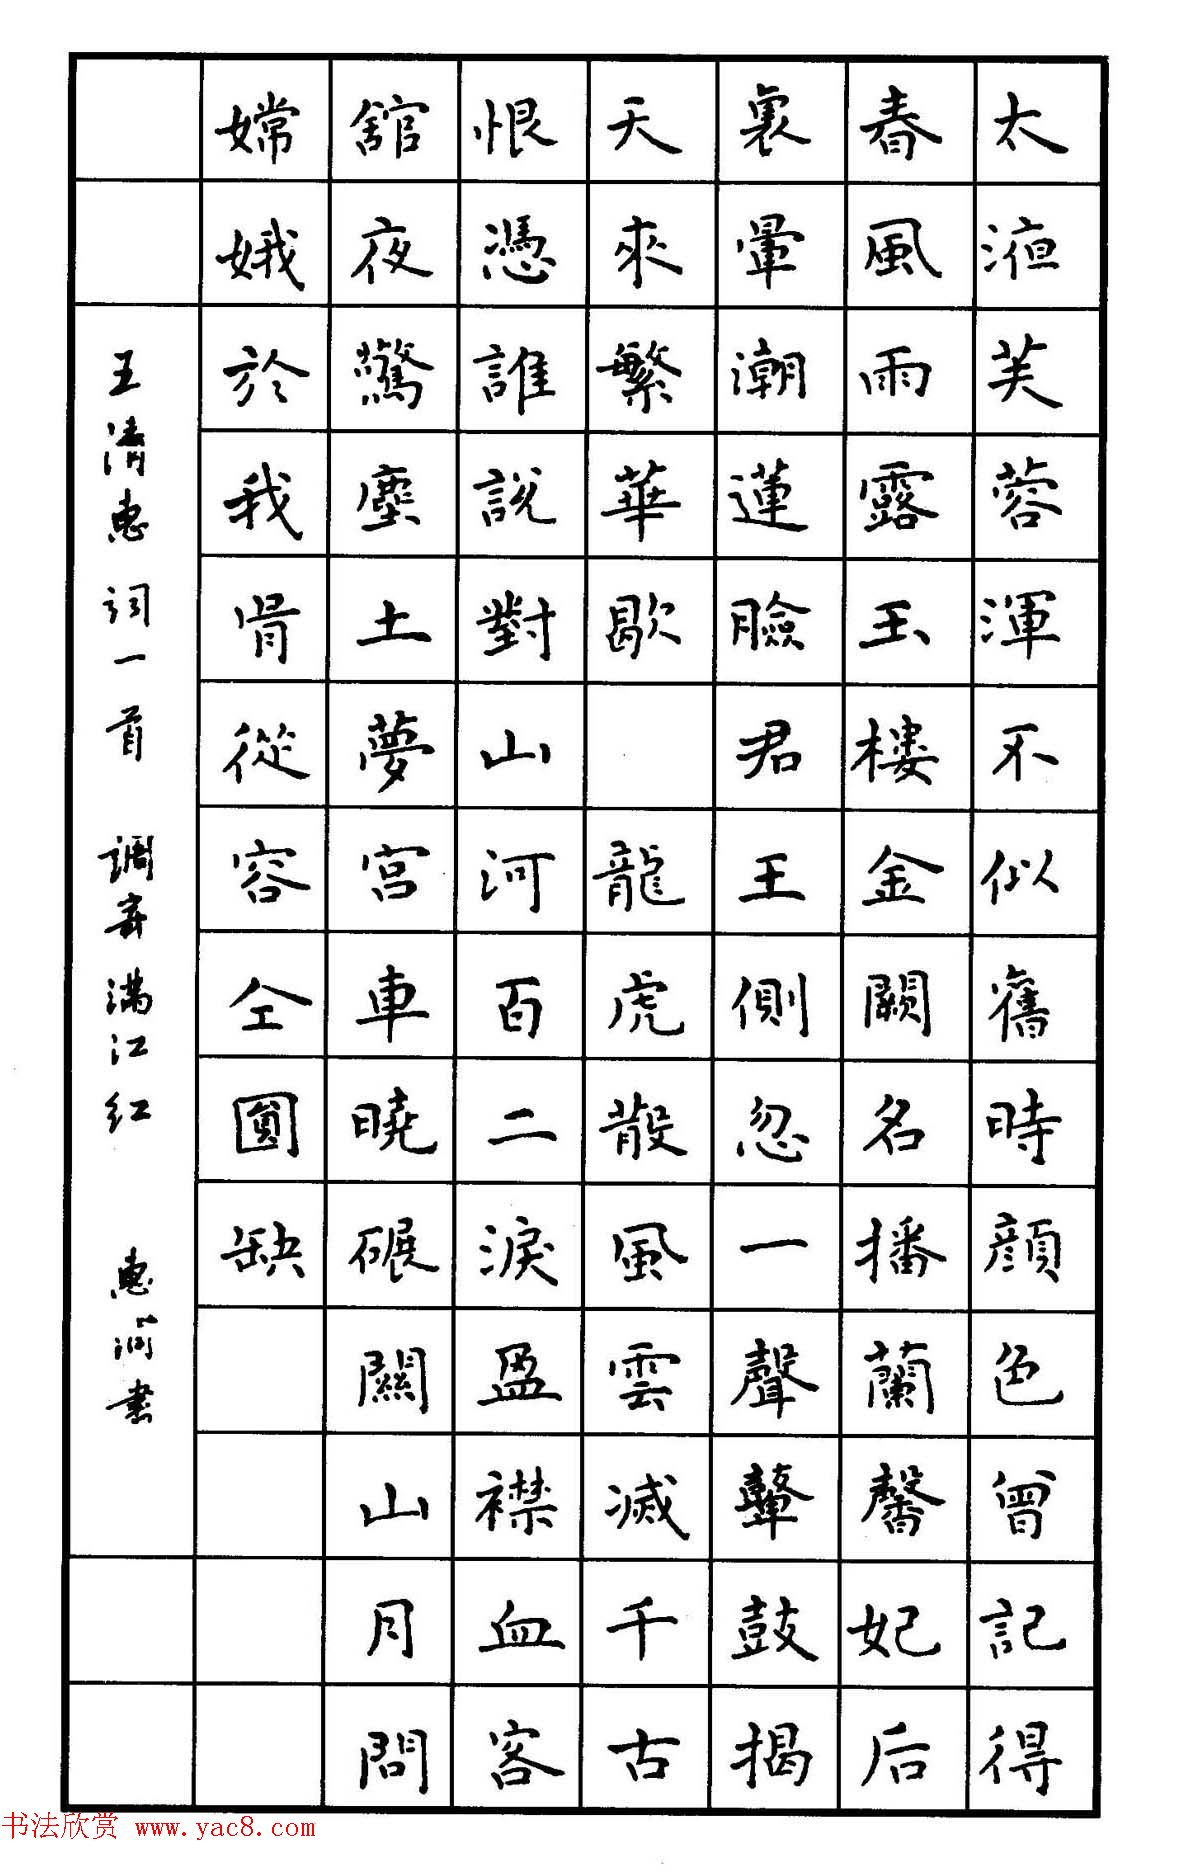 太液芙蓉渾不似舊時顔色曾記得
春風雨露玉樓金闕名播蘭馨妃后
裏暈潮蓮臉君王側忽一聲鼙鼓揭
天來繁華歇 龍虎散風雲滅千古
恨憑誰說對山河百二淚盈襟血客
館夜驚塵土夢宮車曉碾關山月問
嫦娥於我肯從容仝圓缺
王清惠词一首 調寄满江红 惠书
书法欣赏 www.yac8.com